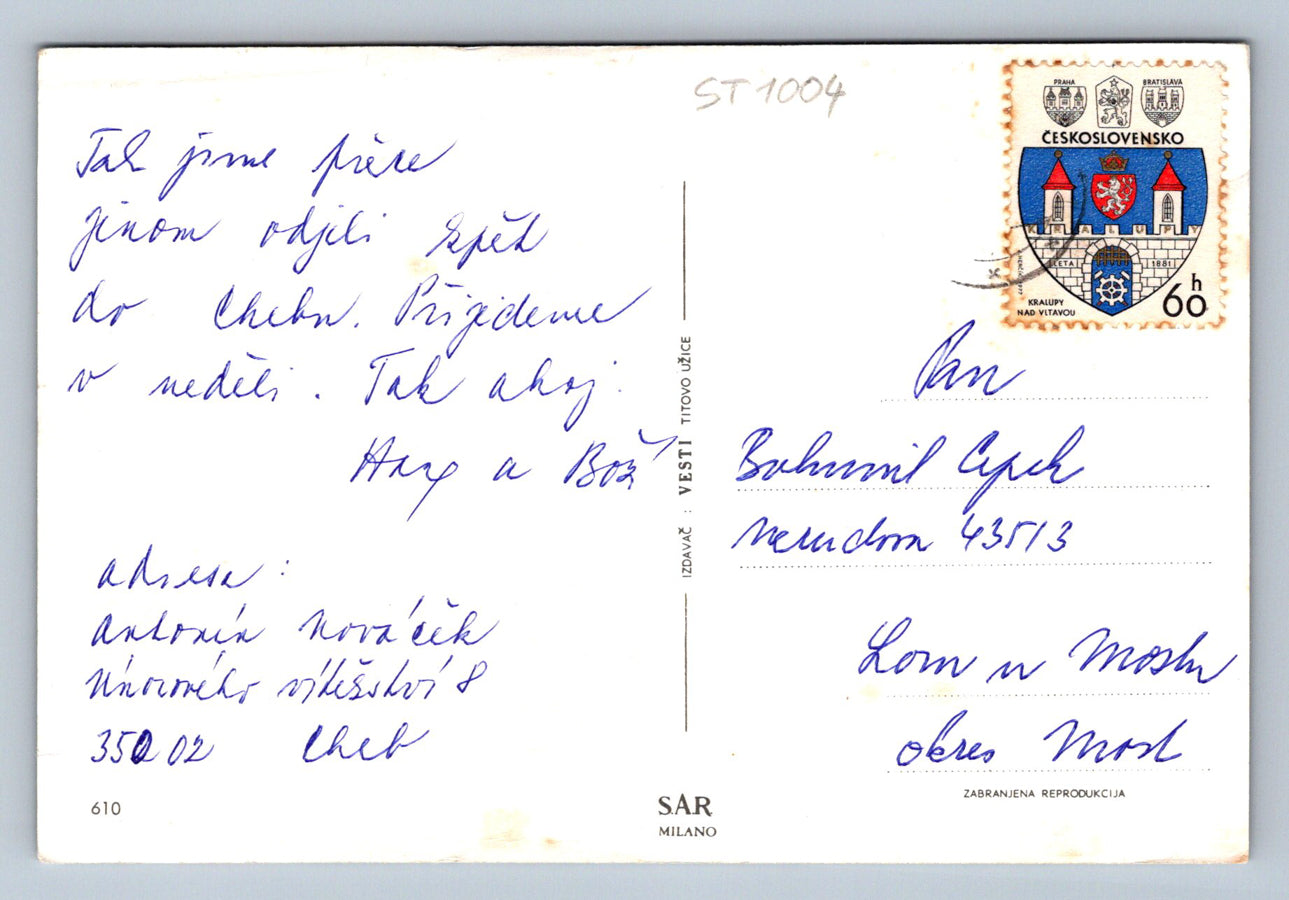 ST 1004
PRAHA
BRATISLAVA
ČESKOSLOVENSKO
KRALUPY
LETA 1881
KRALUPY
NAD VLTAVOU
60 h
Tak jsme přece
jinam odjeli zpět
do Chebu. Přijedeme
v neděli. Tak ahoj.
a Bož
adresa:
Antonín Nováček
Únorového vítězství 8
350 02 Cheb
610
IZDAVAČ : VESTI TITOVO UŽICE
SAR
MILANO
Pan
Bohumil Cepek
Nerudova 435/3
Lom u Mostu
okres Most
ZABRANJENA REPRODUKCIJA